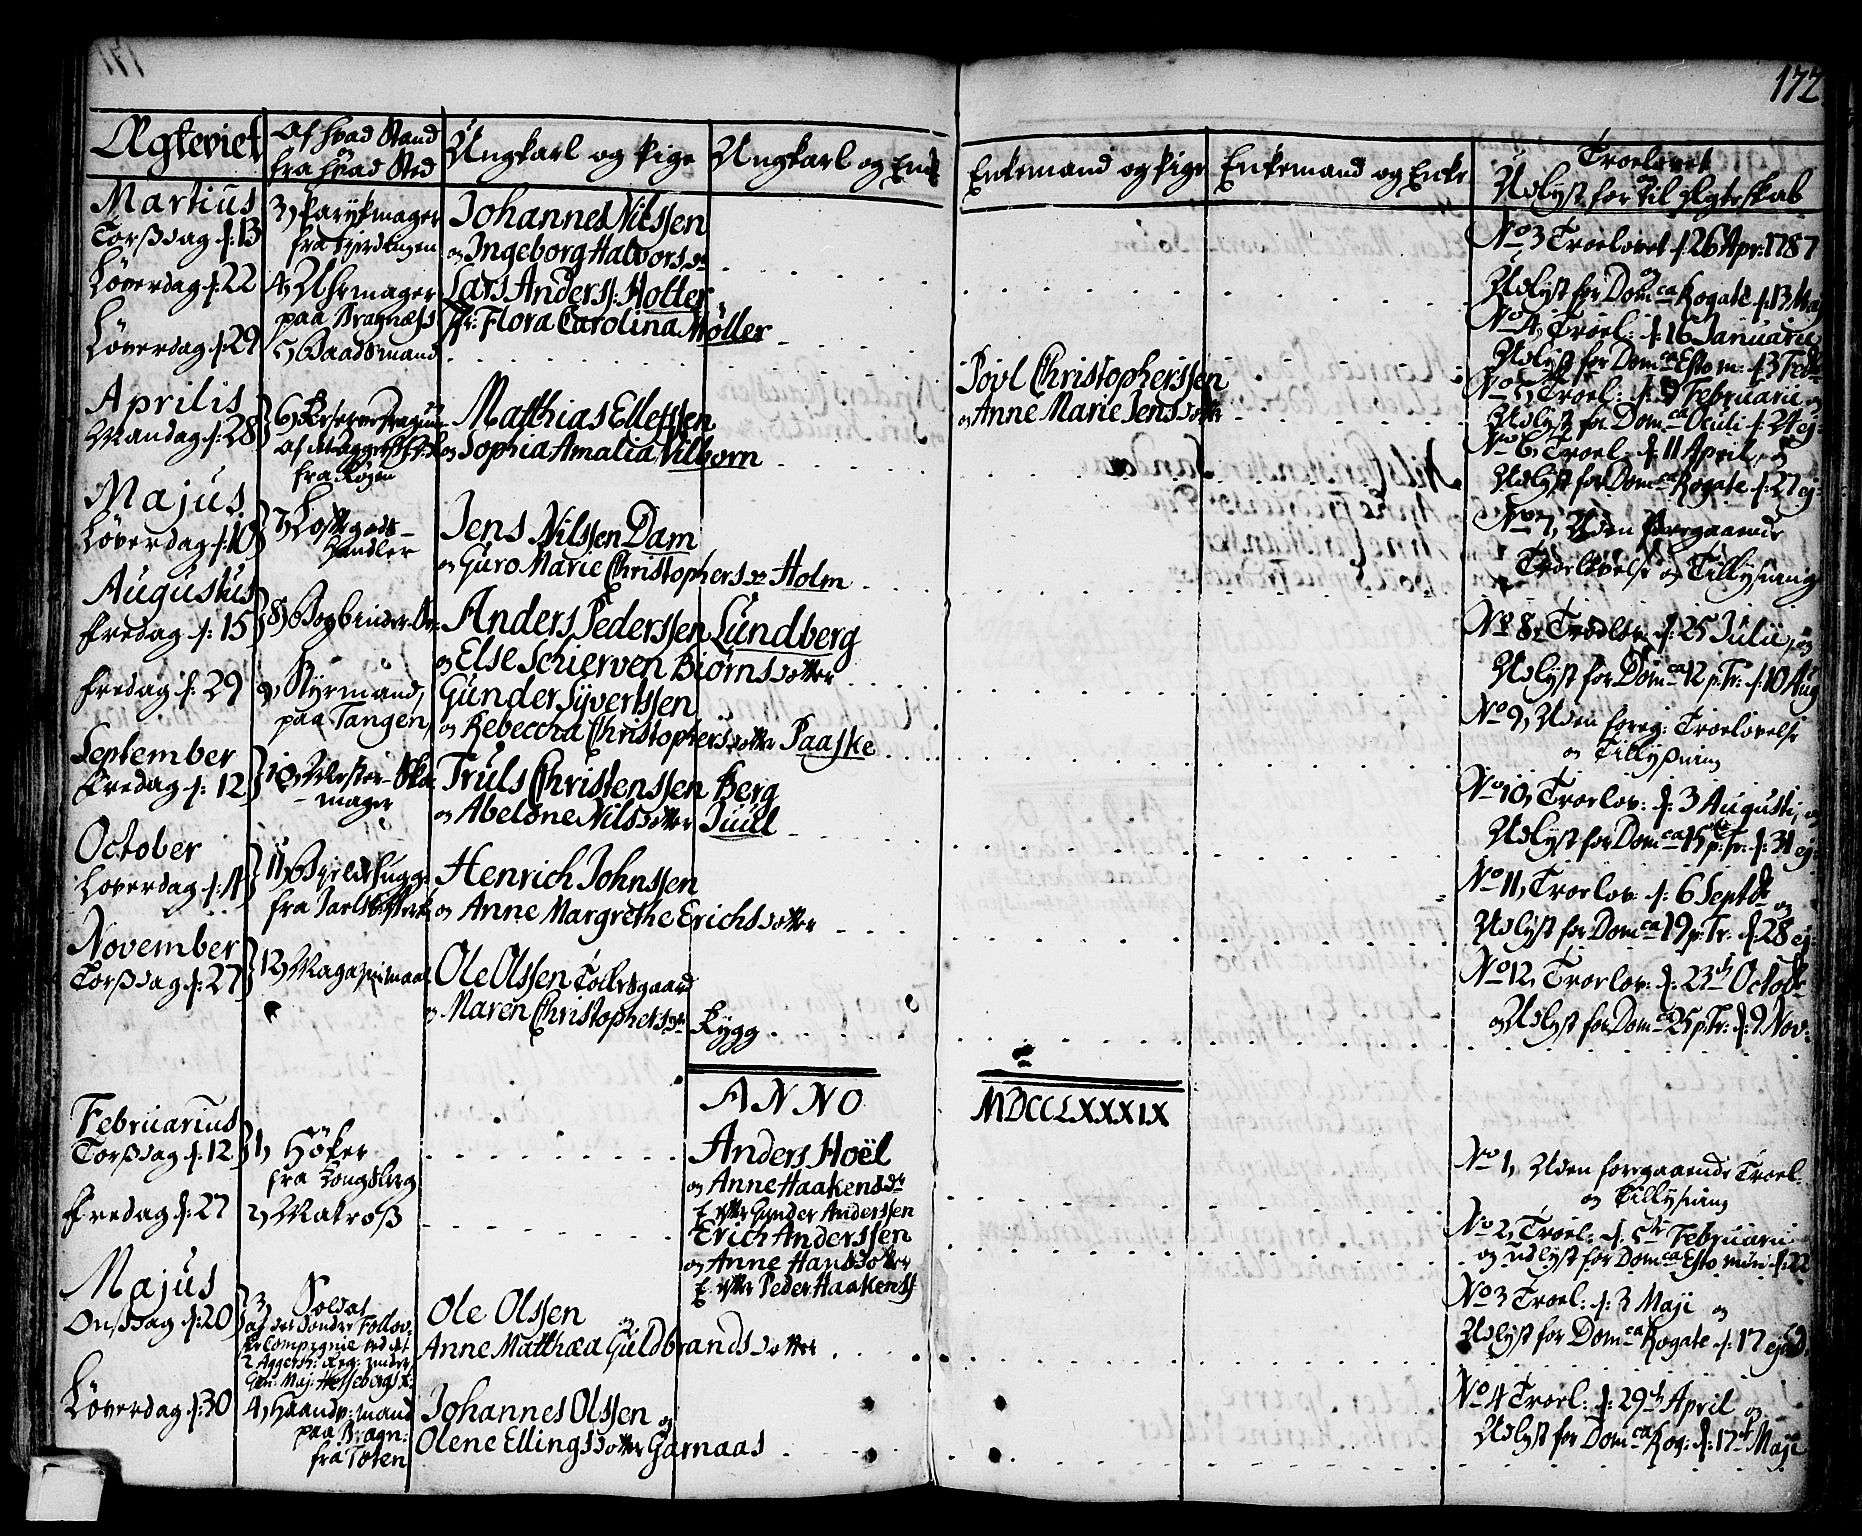 172.
Ægteviet
Af hvad Stand
og
fra hvad Sted
Ungkarl og Pige
Ungkarl og Enke
Enkemand og Pige
Enkemand og Enke
Troelovet
og
Udlyst for til Ægteskab
Martius
Torsdag d: 13
3, Parykmager
fra Fierdingen
Johannes Nilssen
og Ingeborg Halvorsdr
No 3 Troelovet d: 26 Apr: 1787
og
Udlyst for Domca Rogate d: 13 Maj
Løverdag d: 22
4, Uhrmager
paa Bragnæss
Lars Anderss: Holter
Fr: Flora Carolina Møller
No 4, Troel: d: 16 Januarii
Udlyst for Domca Esto m: d: 3 Febr
Løverdag d: 29
5, Baadsmand
Povl Christopherssen
og Anne Marie Jensdotter
No 5, Troel: d: 9 Februarii og
Udlyst for Domca Oculi d: 24 ej:
Aprilis
Mandag d: 28
fra Røgen
Matthias Ellefssen
og Sophia Amalia Vilborn
No 6, Troel: d: 11 April, og
Udlyst for Domca Rogate d: 27 ej:
Majus
Løverdag d: 10
7,
Handler
Jens Nilssen Dam
og Guro Marie Christophersdr Holm
No 7, Uden foregaaende
Troelovelse og Tillysning
Augustus
Fredag d: 15
8, Bogbinder
Anders Pederssen Lundberg
og Else Schierven Biørnsdotter
No 8, Troelov: d: 25 Julii, og
Udlyst for Domca 12 p. Tr: d: 10 Aug
Fredag d: 29
9, Styrmand,
paa Tangen,
Gunder Syvertssen
og Rebeccha Christophersdotter Paaske
No 9, Uden foreg: Troelovelse
og Tillysning
September
Fredag d: 12
10, Mester-Sko
-mager
Truls Christenssen Berg
og Abelone Nilsdotter Juul
No 10, Troelov: d: 3 Augusti, og
Udlyst for Domca 15 p. Tr: d: 31 ej:
October
Løverdag d: 11
11, Bielkehugger
fra Jarlsb:
Henrich Johnssen
og Anne Margrethe Erichsdotter
No 11, Troelov: d: 6 Septbr og
Udlyst for Domca 19 p. Tr: d: 28 ej:
November
Torsdag d: 27
12,
Ole Olssen Tollesgaard
og Maren Christophersdr Rygg
No 12, Troelov: d: 23de Octobr
og Udlyst for Domca 25 p. Tr: d: 9 Nov:
ANNO
MDCCLXXXIX
Februarius
Torsdag d: 12
1, Høker
fra Kongsberg
Anders Hoël
og Anne Haakensdr
E. efter Gunder Anderssen
No 1, Uden foregaaende Troel:
og Tillysning
Fredag d: 27
2, Matros
Erich Anderssen
og Anne Hansdotter
E. efter Peder Haakenss
No 2, Troel: d: 5te Februarii
og udlyst for Domca Esto mihi d: 22
Majus
Onsdag d: 20
3, Soldat
af det Søndre Follov-
ske Compagnie ved det
2 Aggersh: Reg: under
Gen: Maj:
Ole Olssen
og
Anne Matthæa Guldbrandsdotter
No 3 Troel: d: 3 Maji og
Udlyst for Domca Rogate d: 17 ejsd.
Løverdag d: 30
4, Haandv:mand
paa Bragn:
fra Toten
Johannes Olssen og
Olene Ellingsdotter Garnaas
No 4 Troel: d: 29de April og
Udlyst for Domca Rog: d: 17de Maji